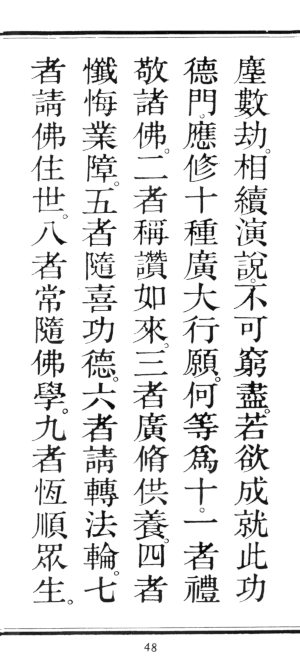 塵數劫。相續演說。不可窮盡。若欲成就此功
德門。應修十種廣大行願。何等爲十。一者禮
敬諸佛。二者稱讚如來。三者廣脩供養。四者
懺悔業障。五者隨喜功德。六者請轉法輪。七
者請佛住世。八者常隨佛學。九者恆順眾生。
48